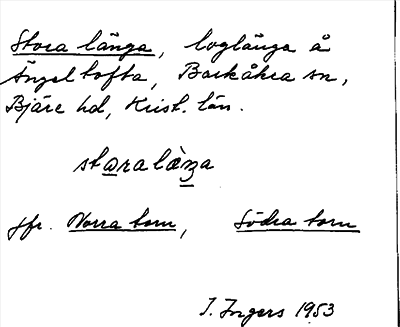 Stora länga, loglänga å
Ängeltofta, Barkåkra sn,
Bjäre hd, Krist. län.
stѡralὰnza
jfr. Norra torn, Södra torn
I. Ingers 1953